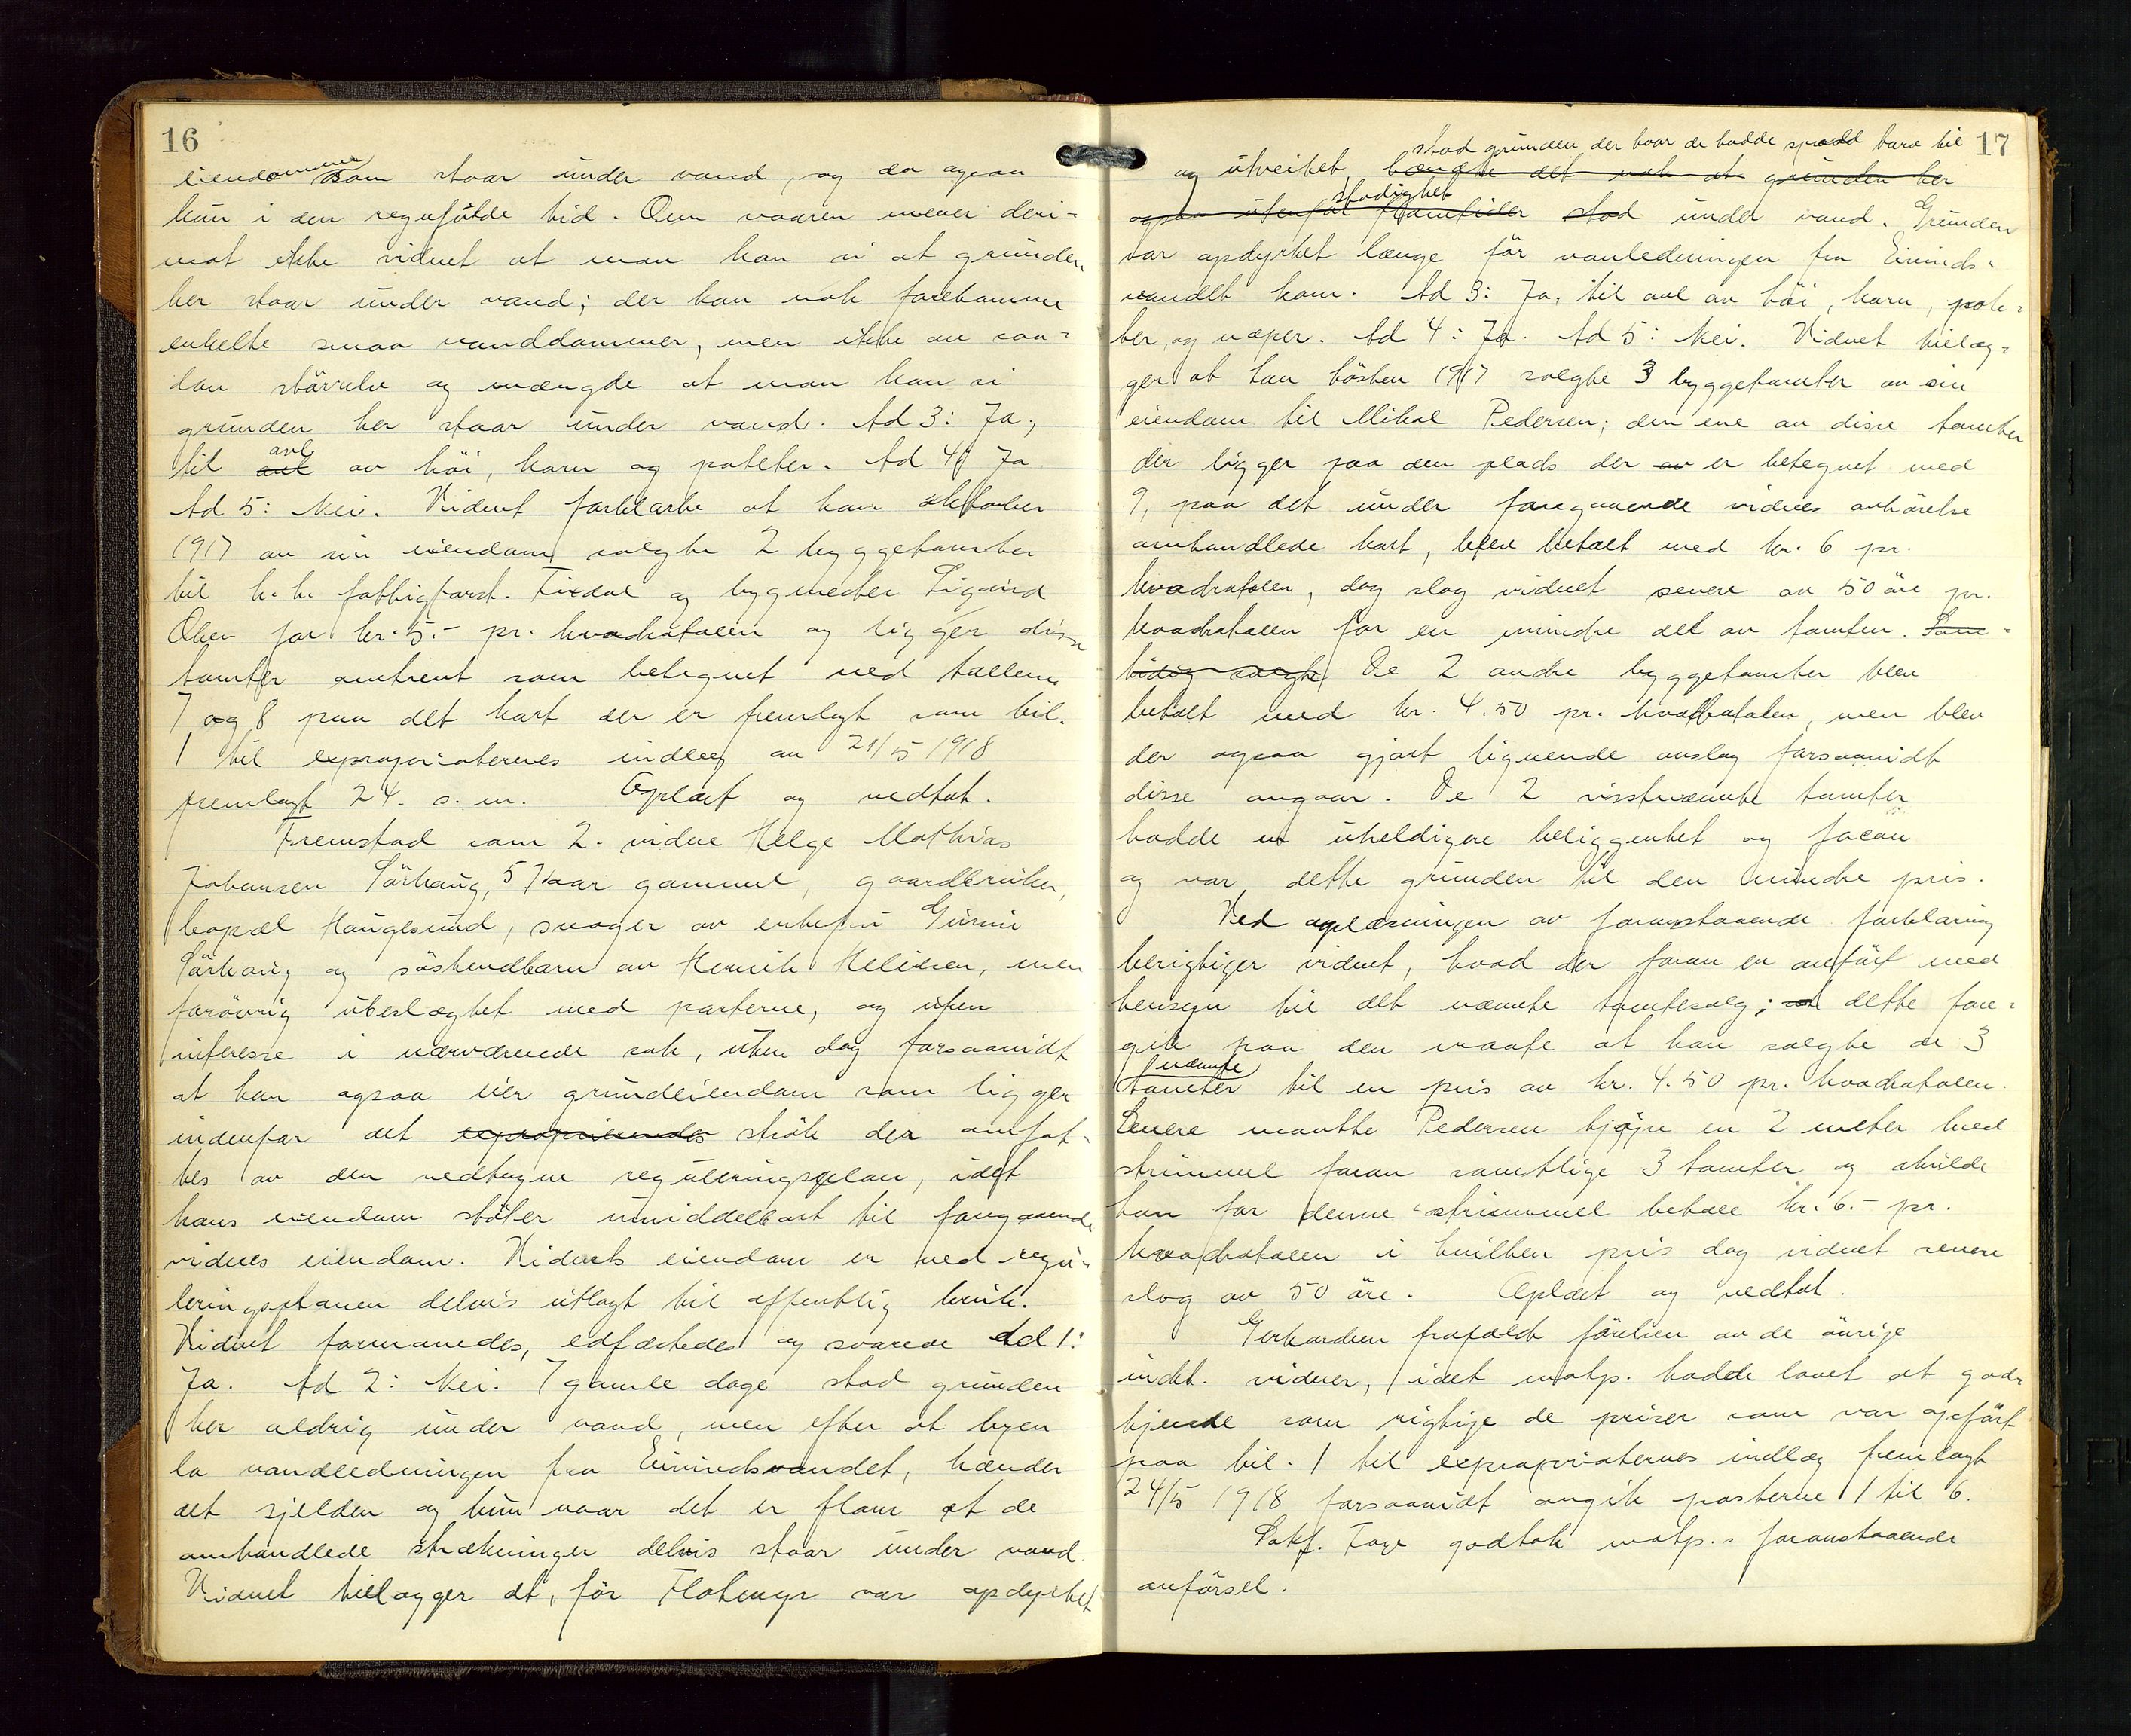 16
eiendommene som staar under vand, og da ogsaa
kun i den regnfulde tid. Om vaaren mener deri-
mot ikke vidnet at man kan si at grunden
her staar under vand; der kan nok forekomme
enkelte smaa vanddammer, men ikke av saa-
dan störrelse og mængde at man kan si
grunden her staar under vand. Ad 3: Ja,
til avl av höi, korn og poteter. Ad 4: Ja.
Ad 5: Nei. Vidnet forklarte at han oktober
1917 av sin eiendom solgte 2 byggetomter
til h.h. fattigforst. Fixdal og bygmester Sigurd
Olsen for kr. 5.- pr. kvadratalen og ligger disse
tomter omtrent som betegnet ved tallene
7 og 8 paa det kart der er fremlagt som bil.
1 til expropriaternes indlæg av 21/5 1918
fremlagt 24. s.m. Oplæst og vedtat.
Fremstod som 2. vidne Helge Mathias
Johansen Sörhaug, 57 aar gammel, gaardbruker,
bopæl Haugesund, svoger av enkefru Gurine
Sörhaug og söskendbarn av Henrik Helisen, men
forövrig ubeslægtet med parterne, og uten
interesse i nærværende sak, uten dog forsaavidt
at han ogsaa eier grundeiendom som ligger
indenfor det exproprierendes strök der omfat-
tes av den vedtagne reguleringsplan, idet
hans eiendom stöter umiddelbart til foregaaende
vidnes eiendom. Vidnets eiendom er ved regu-
leringsplanen delvis utlagt til offentlig bruk.
Vidnet formanedes, edfæstedes og svarede Ad 1:
Ja. Ad 2: Nei. I gamle dage stod grunden
her aldrig under vand, men efter at byen
la vandledningen fra Eivindsvandet, hænder
det sjelden og kun naar det er flom at de
omhandlede strækninger delvis staar under vand.
Vidnet tillægger at, för Flotmyr var opdyrket
17
stod grunden der hvor de hadde spadd torv til
og utveitet, hændte det nok at grunden her
stadighet
ogsaa utenfor flomtider stod under vand. Grunden
var opdyrket længe för vanledningen fra Eivinds-
vandet kom. Ad 3: Ja, til avl av höi, korn, pote-
ter, og næper. Ad 4: Ja. Ad 5: Nei. Vidnet tillæg-
ger at han hösten 1917 solgte 3 byggetomter av sin
eiendom til Mikal Pedersen; den ene av disse tomter
der ligger paa den plads der er betegnet med
9, paa det under foregaaende vidnes avhörelse
omhandlede kart, blev betalt med kr. 6 pr.
kvadratalen, dog slog vidnet senere av 50 öre pr.
kvadratalen for en mindre del av tomten. Sam-
tidig solgte De 2 andre byggetomter blev
betalt med kr. 4.50 pr. kvadratalen, men blev
der ogsaa gjort lignende avslag forsaavidt
disse angaar. De 2 sistnævnte tomter
hadde en uheldigere beliggenhet og facon
og var dette grunden til den mindre pris.
Ved oplæsningen av foranstaaende forklaring
berigtiger vidnet, hvad der foran er anfört med
hensyn til det nævnte tomtesalg; dette fore-
gik paa den maate at han solgte de 3
nævnte
tomter til en pris av kr. 4.50 pr. kvadratalen.
Senere maatte Pedersen kjöpe en 2 meter bred
strimmel foran samtlige 3 tomter og skulde
han for denne strimmel betale kr. 6.- pr.
kvadratalen i hvilken pris dog vidnet senere
slog av 50 öre. Oplæst og vedtat.
Gerhardsen frafaldt förelsen av de övrige
indst. vidner, idet motp. hadde lovet at god-
kjende som rigtige de priser som var opfört
paa bil. 1 til expropriaternes indlæg fremlagt
24/5 1918 forsaavidt angik posterne 1 til 6.
Sakf. Foye godtok motp.s foranstaaende
anförsel.